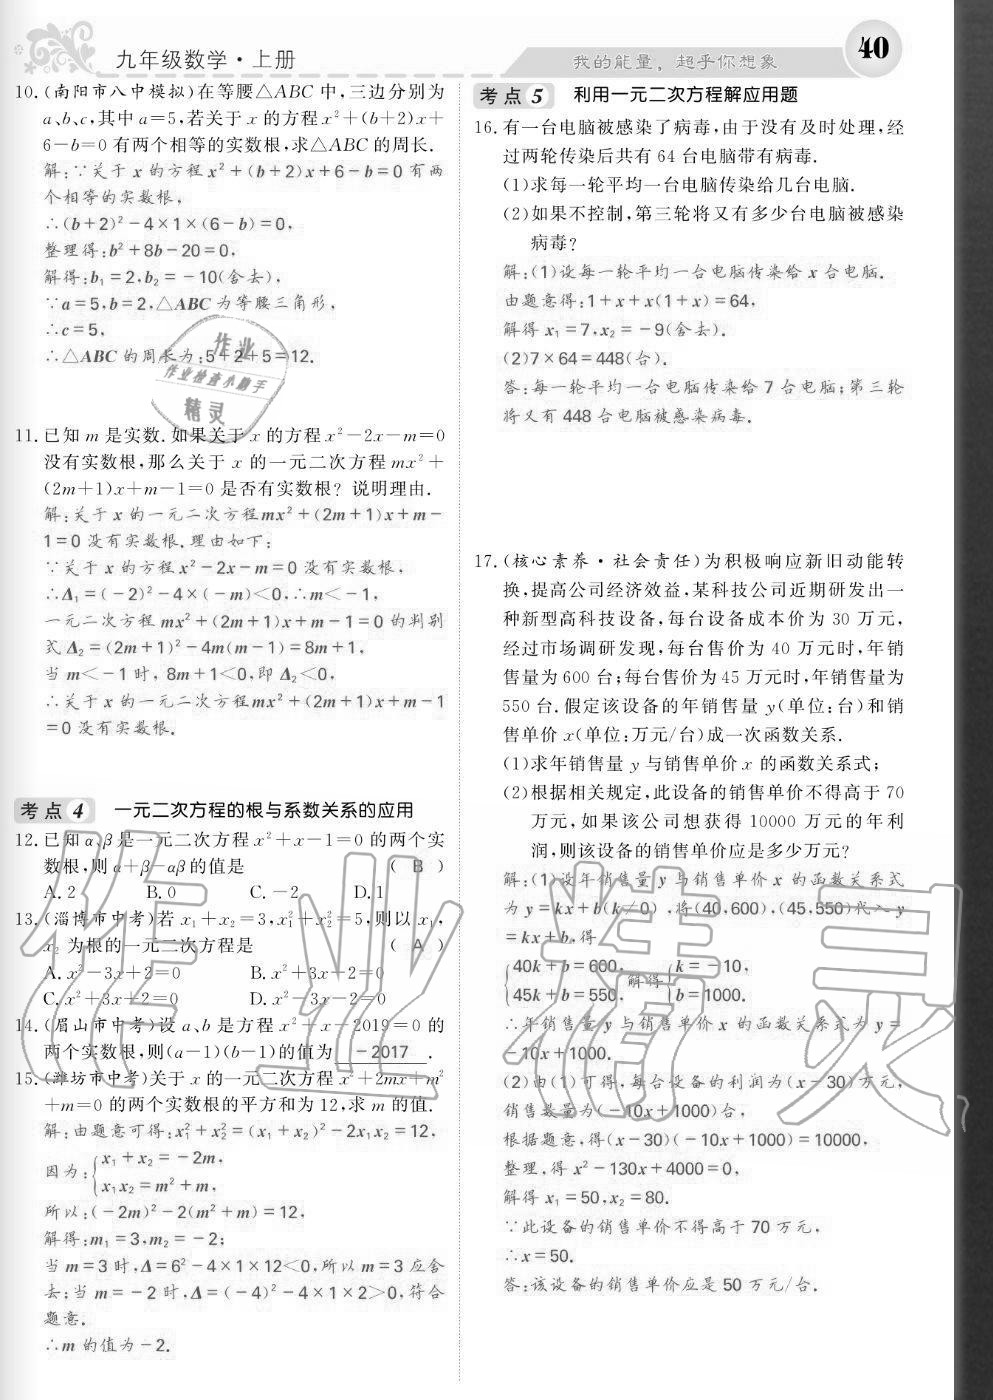 九年级数学·上册
我的能量，超乎你想象
40
10.(南阳市八中模拟)在等腰△ABC 中,三边分别为
a、b、c,其中 a=5,若关于 x 的方程 x²+(b+2)x+
6-b=0 有两个相等的实数根,求△ABC 的周长.
解:∵关于 x 的方程 x²+(b+2)x+6-b=0 有两
个相等的实数根,
∴(b+2)²-4×1×(6-b)=0,
整理得:b²+8b-20=0,
解得:b₁=2,b₂=-10(舍去),
∵a=5,b=2,△ABC 为等腰三角形,
∴c=5,
∴△ABC 的周长为:5+2+5=12.
11.已知 m 是实数.如果关于 x 的方程 x²-2x-m=0
没有实数根,那么关于 x 的一元二次方程 mx²+
(2m+1)x+m-1=0 是否有实数根? 说明理由.
解:关于 x 的一元二次方程mx²+(2m+1)x+m-
1=0 没有实数根.理由如下:
∵关于 x 的方程 x²-2x-m=0 没有实数根,
∴Δ₁=(-2)²-4×(-m)<0,∴m<-1,
一元二次方程 mx²+(2m+1)x+m-1=0 的判别
式 Δ₂=(2m+1)²-4m(m-1)=8m+1,
当 m<-1 时, 8m+1<0,即 Δ₂<0,
∴关于 x 的一元二次方程mx²+(2m+1)x+m-1
=0 没有实数根.
考点 4 一元二次方程的根与系数关系的应用
12.已知 α、β 是一元二次方程 x²+x-1=0 的两个实
数根,则 α+β-αβ 的值是 ( B )
A.2 B.0 C.-2 D.1
13.(淄博市中考)若 x₁+x₂=3,x₁²+x₂²=5,则以 x₁,
x₂ 为根的一元二次方程是 ( A )
A.x²-3x+2=0 B.x²+3x-2=0
C.x²+3x+2=0 D.x²-3x-2=0
14.(眉山市中考)设 a、b 是方程 x²+x-2019=0 的
两个实数根,则(a-1)(b-1)的值为 -2017 .
15.(潍坊市中考)关于 x 的一元二次方程 x²+2mx+m²
+m=0 的两个实数根的平方和为 12,求 m 的值.
解:由题意可得:x₁²+x₂²=(x₁+x₂)²-2x₁x₂=12,
因为:{x₁+x₂=-2m,
x₁x₂=m²+m,
所以:(-2m)²-2(m²+m)=12,
解得:m₁=3,m₂=-2;
当 m=3 时,Δ=6²-4×1×12<0,所以 m=3 应舍
去;当 m=-2 时,Δ=(-4)²-4×1×2>0,符合
题意.
∴m 的值为-2.
考点 5 利用一元二次方程解应用题
16.有一台电脑被感染了病毒,由于没有及时处理,经
过两轮传染后共有 64 台电脑带有病毒.
(1)求每一轮平均一台电脑传染给几台电脑.
(2)如果不控制,第三轮将又有多少台电脑被感染
病毒?
解:(1)设每一轮平均一台电脑传染给 x 台电脑.
由题意得:1+x+x(1+x)=64,
解得 x₁=7,x₂=-9(舍去).
(2)7×64=448(台).
答:每一轮平均一台电脑传染给 7 台电脑;第三轮
将又有 448 台电脑被感染病毒.
17.(核心素养·社会责任)为积极响应新旧动能转
换,提高公司经济效益,某科技公司近期研发出一
种新型高科技设备,每台设备成本价为 30 万元,
经过市场调研发现,每台售价为 40 万元时,年销
售量为 600 台;每台售价为 45 万元时,年销售量为
550 台.假定该设备的年销售量 y(单位:台)和销
售单价 x(单位:万元/台)成一次函数关系.
(1)求年销售量 y 与销售单价 x 的函数关系式;
(2)根据相关规定,此设备的销售单价不得高于 70
万元,如果该公司想获得 10000 万元的年利
润,则该设备的销售单价应是多少万元?
解:(1)设年销售量 y 与销售单价 x 的函数关系式
为 y=kx+b(k≠0),将(40,600),(45,550)代入 y
=kx+b,得
{40k+b=600, 解得{k=-10,
45k+b=550, b=1000.
∴年销售量 y 与销售单价 x 的函数关系式为 y=
-10x+1000.
(2)由(1)可得,每台设备的利润为(x-30)万元,
销售数量为(-10x+1000)台,
根据题意,得(x-30)(-10x+1000)=10000,
整理,得 x²-130x+4000=0,
解得 x₁=50,x₂=80.
∵此设备的销售单价不得高于 70 万元,
∴x=50.
答:该设备的销售单价应是 50 万元/台.
作业
作业检查小助手
精灵
作业精灵